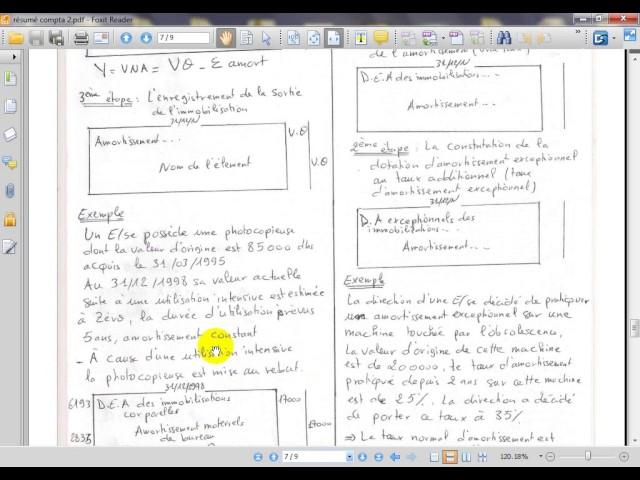 résumé compta 2.pdf - Foxit Reader
7/9
Y = VNA = VΘ - Σ amort
3ème étape : L'enregistrement de la Sortie
de l'immobilisation
31/12/N
Amortissement...
Nom de l'élement
V.Θ
V.Θ
Exemple
Un E/se possède une photocopieuse
dont la valeur d'origine est 85000 dhs
acquis le 31/03/1995
Au 31/12/1998 sa valeur actuelle
suite à une utilisation intensive est estimée
à Zéro, la durée d'utilisation prévus
5 ans, amortissement constant
- À cause d'une utilisation intensive
la photocopieuse est mise au rebut.
31/12/1998
6193 D.E.A des immobilisations
corporelles
17000
2835 Amortissement matériels
de bureau
17000
de l'amortissement
31/12/N
D.E.A des immobilisations...
Amortissement...
2ème étape : La constatution de la
dotation d'amortissement exceptionnel
au taux additionnel (taux
d'amortissement exceptionnel)
31/12/N
D.A exceptionnels des
immobilisations...
Amortissement...
Exemple
La direction d'une E/se décide de pratiquer
un amortissement exceptionnel sur une
machine touchée par l'obsolescence,
la valeur d'origine de cette machine
est de 200000, le taux d'amortissement
pratiqué depuis 2 ans sur cette machine
est de 25%. La direction a décidé
de porter ce taux à 35%
⇒ Le taux normal d'amortissement est
7/9
120.18%